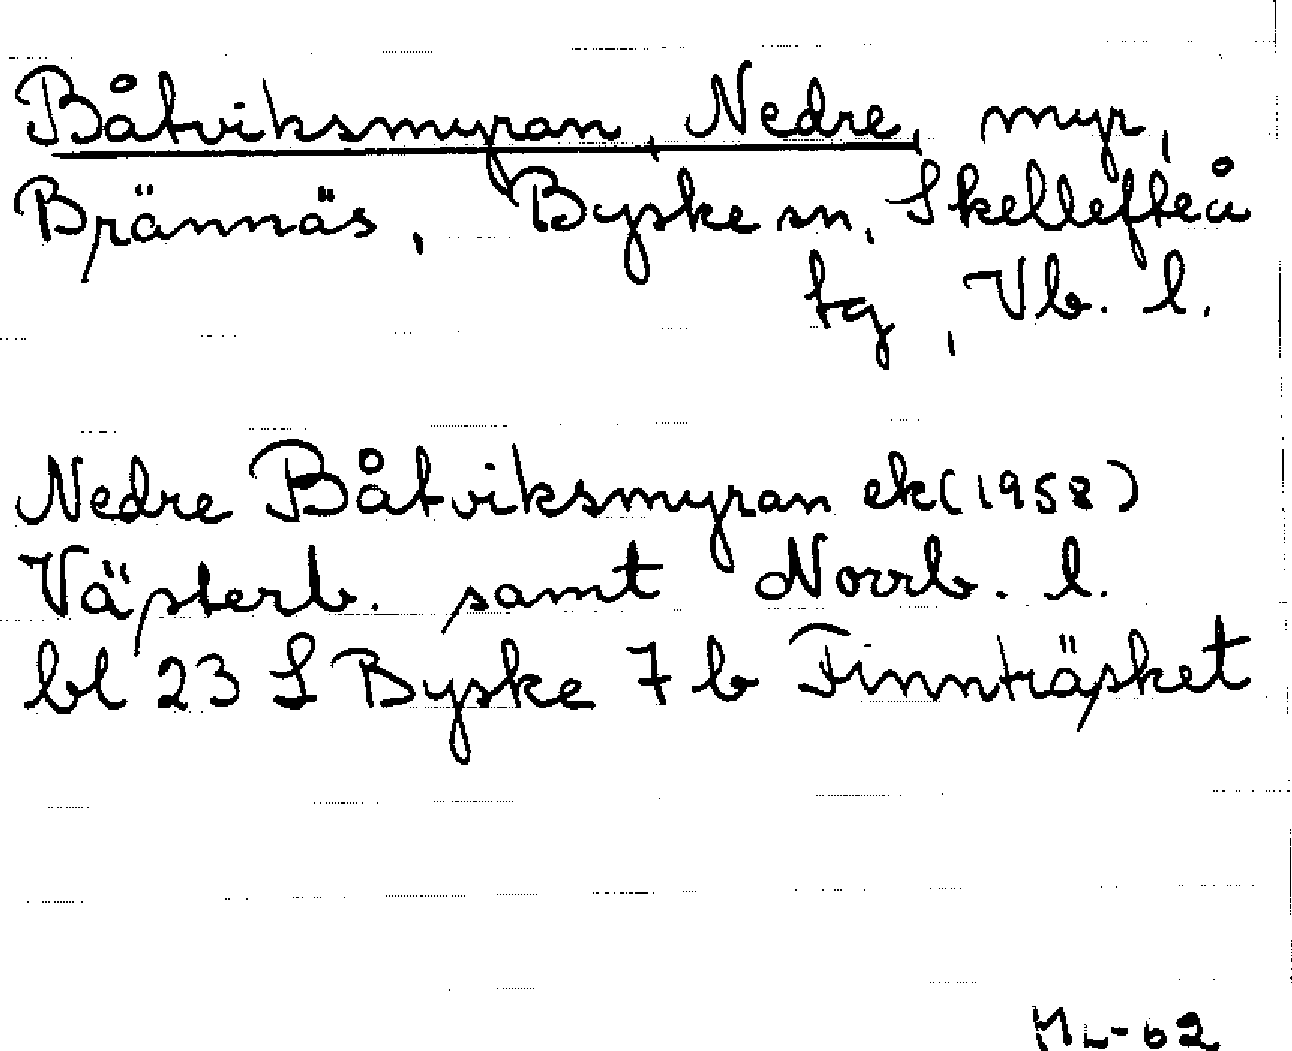 Båtviksmyran, Nedre, myr,
Brännäs, Byske sn, Skellefteå
tg, Vb. l.
Nedre Båtviksmyran ek (1958)
Västerb. samt Norrb. l.
bl 23 S Byske 7 b Finnträsket
ML-62